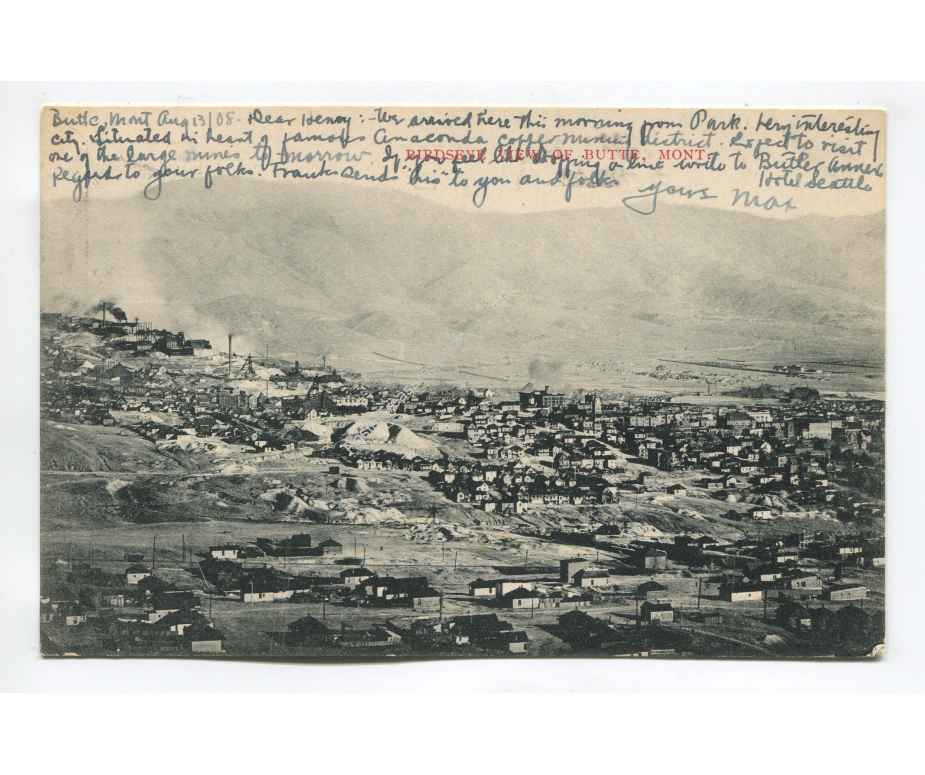 Butte, Mont Aug 13/08 - Dear Henry :- We arrived here this morning from Park. Very interesting
city. Situated in heart of famous Anaconda Copper Mining District. Expect to visit
one of the large mines to morrow. If you feel like dropping a line write to Butler Annex
Hotel Seattle
Regards to your folks. Frank sends his to you and folks
Yours Max
BIRDSEYE VIEW OF BUTTE, MONT.